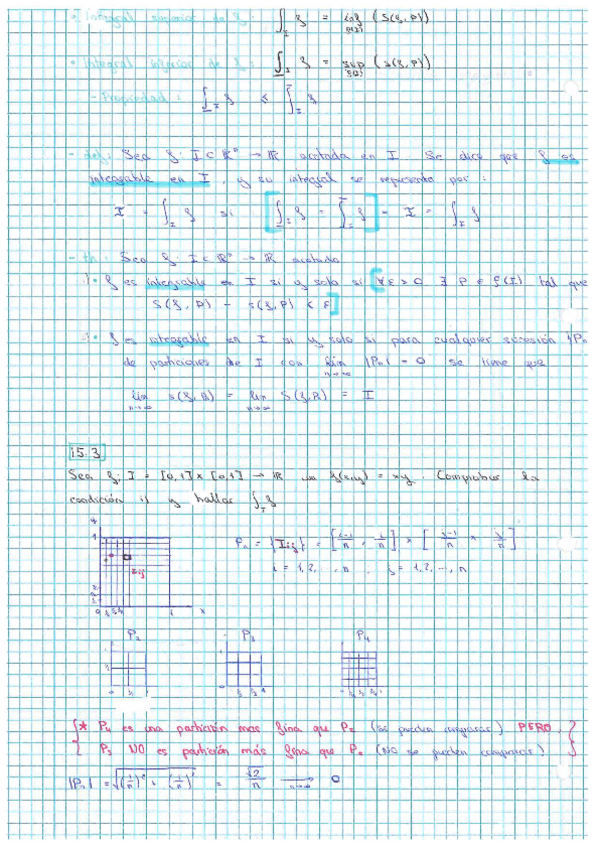 • Integral superior de f: ∫_I f = inf_{P(I)} (S(f, P))
• Integral inferior de f: ∫_I f = sup_{P(I)} (s(f, P))
Propiedad: ∫_I f ≤ ∫_I f
- def: Sea f: I ⊂ ℝⁿ → ℝ acotada en I. Se dice que f es
integrable en I, y su integral se representa por:
I = ∫_I f si [∫_I f = ∫_I f] = I = ∫_I f
- th: Sea f: I ⊂ ℝⁿ → ℝ acotada
1• f es integrable en I si y solo si [∀ε > 0 ∃ P ∈ P(I) tal que
S(f, P) - s(f, P) < ε]
f es integrable en I si y solo si para cualquier sucesión |Pn
de particiones de I con lim_{n→∞} |Pn| = 0 se tiene que
lim_{n→∞} s(f, Pn) = lim_{n→∞} S(f, Pn) = I
15.3
Sea f: I = [0,1] x [0,1] → ℝ con f(x,y) = xy. Comprobar la
condición y hallar ∫_I f
y
1
Iij
0 1 x
Pn = {Iij} = [i-1/n, i/n] x [j-1/n, j/n]
i = 1,2,..., n j = 1,2,..., n
P2 P3 P4
* P4 es una partición mas fina que P2 (se pueden comparar) PERO
P3 NO es partición más fina que P2 (NO se pueden comparar)
|Pn| = √((1/n)² + (1/n)²) = √2/n → 0
n→∞